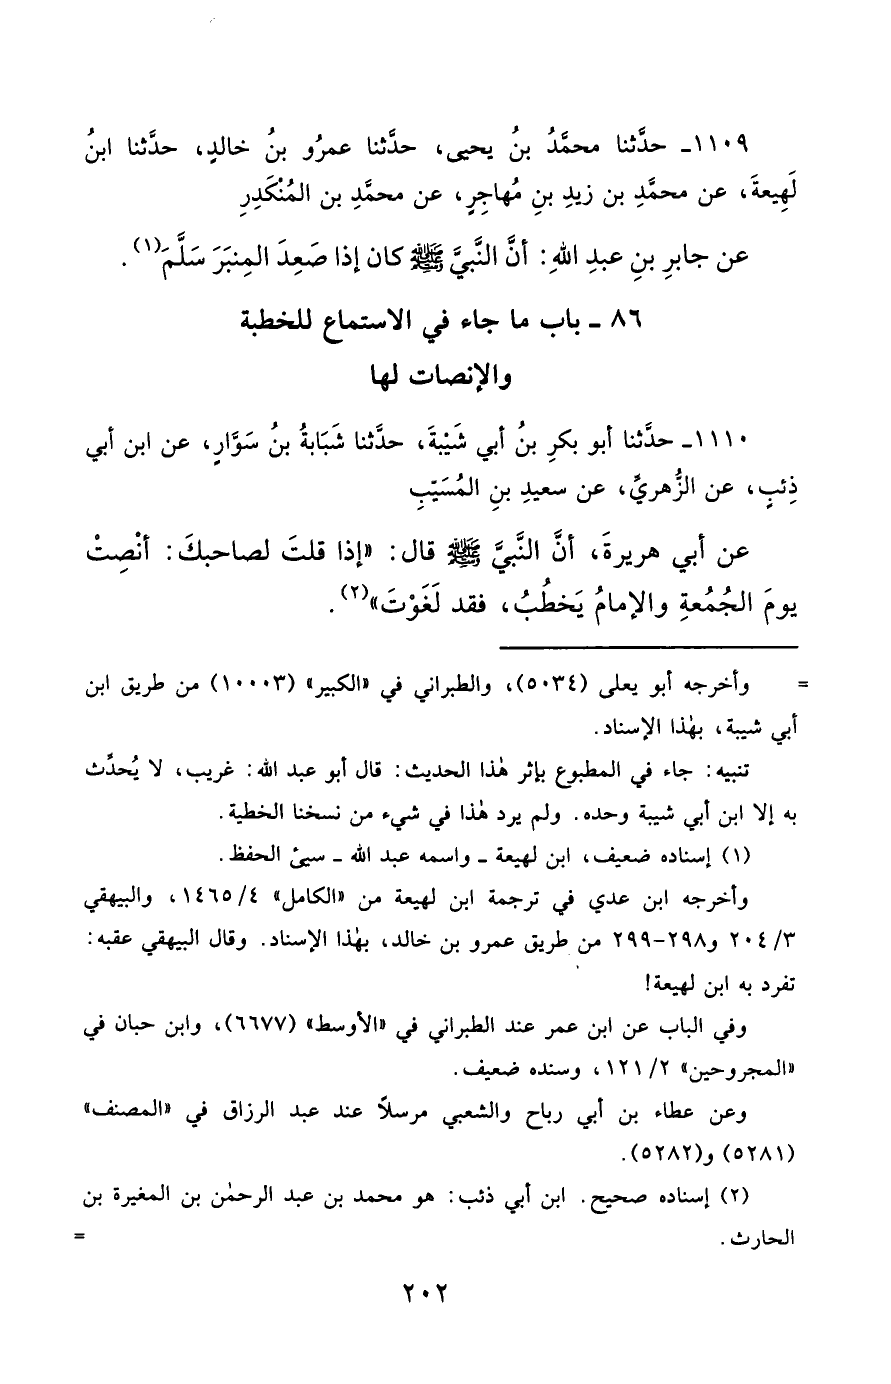 ١١٠٩ـ حدَّثنا محمَّدُ بنُ يحيى، حدَّثنا عمرُو بنُ خالدٍ، حدَّثنا ابنُ
لَهِيعةَ، عن محمَّدِ بن زيدِ بنِ مُهاجِرٍ، عن محمَّدِ بن المُنْكَدِرِ
عن جابرِ بنِ عبدِ اللهِ: أنَّ النَّبيَّ ﷺ كان إذا صَعِدَ المِنبَرَ سَلَّمَ(١).
٨٦ ـ باب ما جاء في الاستماع للخطبة
والإنصات لها
١١١٠ـ حدَّثنا أبو بكرِ بنُ أبي شَيْبَةَ، حدَّثنا شَبَابةُ بنُ سَوَّارٍ، عن ابن أبي
ذِئبٍ، عن الزُّهريِّ، عن سعيدِ بنِ المُسَيّبِ
عن أبي هريرةَ، أنَّ النَّبيَّ ﷺ قال: «إذا قلتَ لصاحبكَ: أنْصِتْ
يومَ الجُمُعةِ والإمامُ يَخطُبُ، فقد لَغَوْتَ»(٢).
= وأخرجه أبو يعلى (٥٠٣٤)، والطبراني في «الكبير» (١٠٠٠٣) من طريق ابن
أبي شيبة، بهٰذا الإسناد.
تنبيه: جاء في المطبوع بإثر هٰذا الحديث: قال أبو عبد الله: غريب، لا يُحدِّث
به إلا ابن أبي شيبة وحده. ولم يرد هٰذا في شيء من نسخنا الخطية.
(١) إسناده ضعيف، ابن لهيعة ـ واسمه عبد الله ـ سيئ الحفظ.
وأخرجه ابن عدي في ترجمة ابن لهيعة من «الكامل» ٤/ ١٤٦٥، والبيهقي
٣/ ٢٠٤ و٢٩٨-٢٩٩ من طريق عمرو بن خالد، بهٰذا الإسناد. وقال البيهقي عقبه:
تفرد به ابن لهيعة!
وفي الباب عن ابن عمر عند الطبراني في «الأوسط» (٦٦٧٧)، وابن حبان في
«المجروحين» ٢/ ١٢١، وسنده ضعيف.
وعن عطاء بن أبي رباح والشعبي مرسلاً عند عبد الرزاق في «المصنف»
(٥٢٨١) و(٥٢٨٢).
(٢) إسناده صحيح. ابن أبي ذئب: هو محمد بن عبد الرحمٰن بن المغيرة بن
الحارث. =
٢٠٢